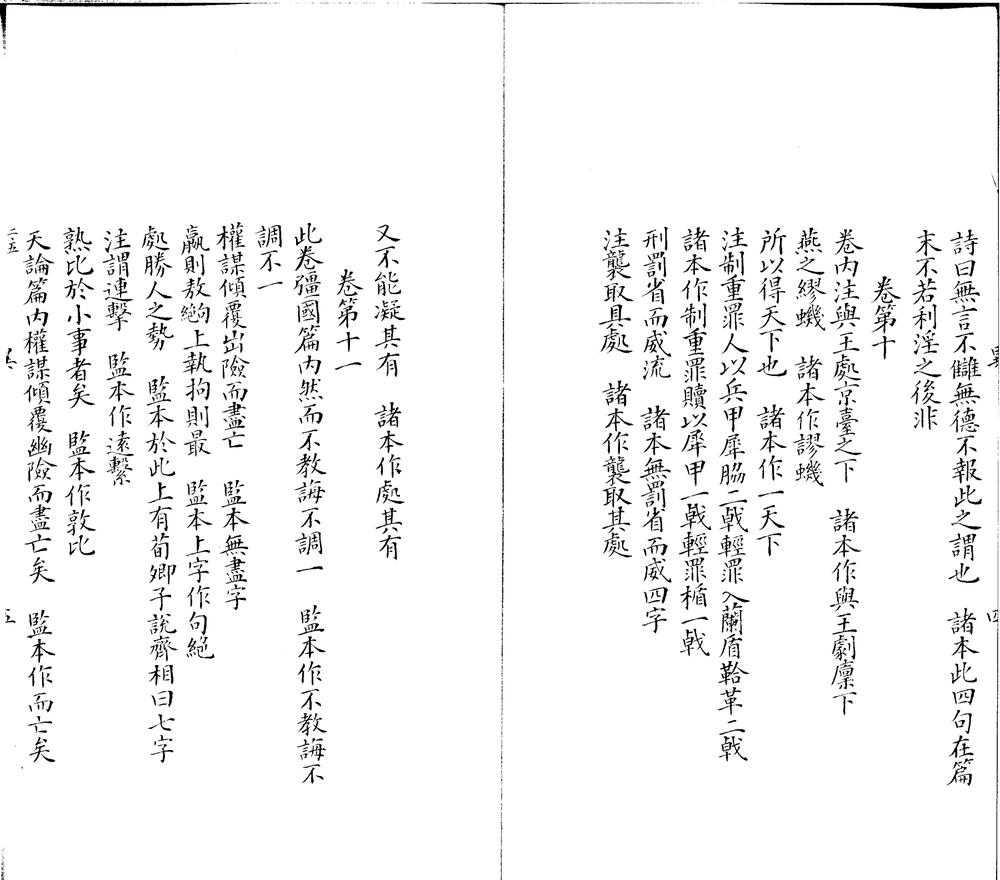 詩曰無言不讎無德不報此之謂也　諸本此四句在篇
末不若利淫之後非
卷第十
卷內注與王處京臺之下　諸本作與王劇廩下
燕之繆蟣　諸本作謬蟣
所以得天下也　諸本作一天下
注制重罪人以兵甲犀脇二戟輕罪入蘭盾鞈革二戟
諸本作制重罪贖以犀甲一戟輕罪楯一戟
刑罰省而威流　諸本無罰省而威四字
注襲取具處　諸本作襲取其處
又不能凝其有　諸本作處其有
卷第十一
此卷彊國篇內然而不教誨不調一　監本作不教誨不
調不一
權謀傾覆岀險而盡亡　監本無盡字
贏則敖絢上執拘則最　監本上字作句絕
處勝人之勢　監本於此上有荀卿子說齊相曰七字
注謂連擊　監本作遠繫
孰比於小事者矣　監本作敦比
天論篇內權謀傾覆幽險而盡亡矣　監本作而亡矣
二五
四
五